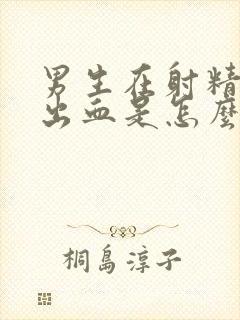 男生在射精
出血是怎麼
桐島淳子